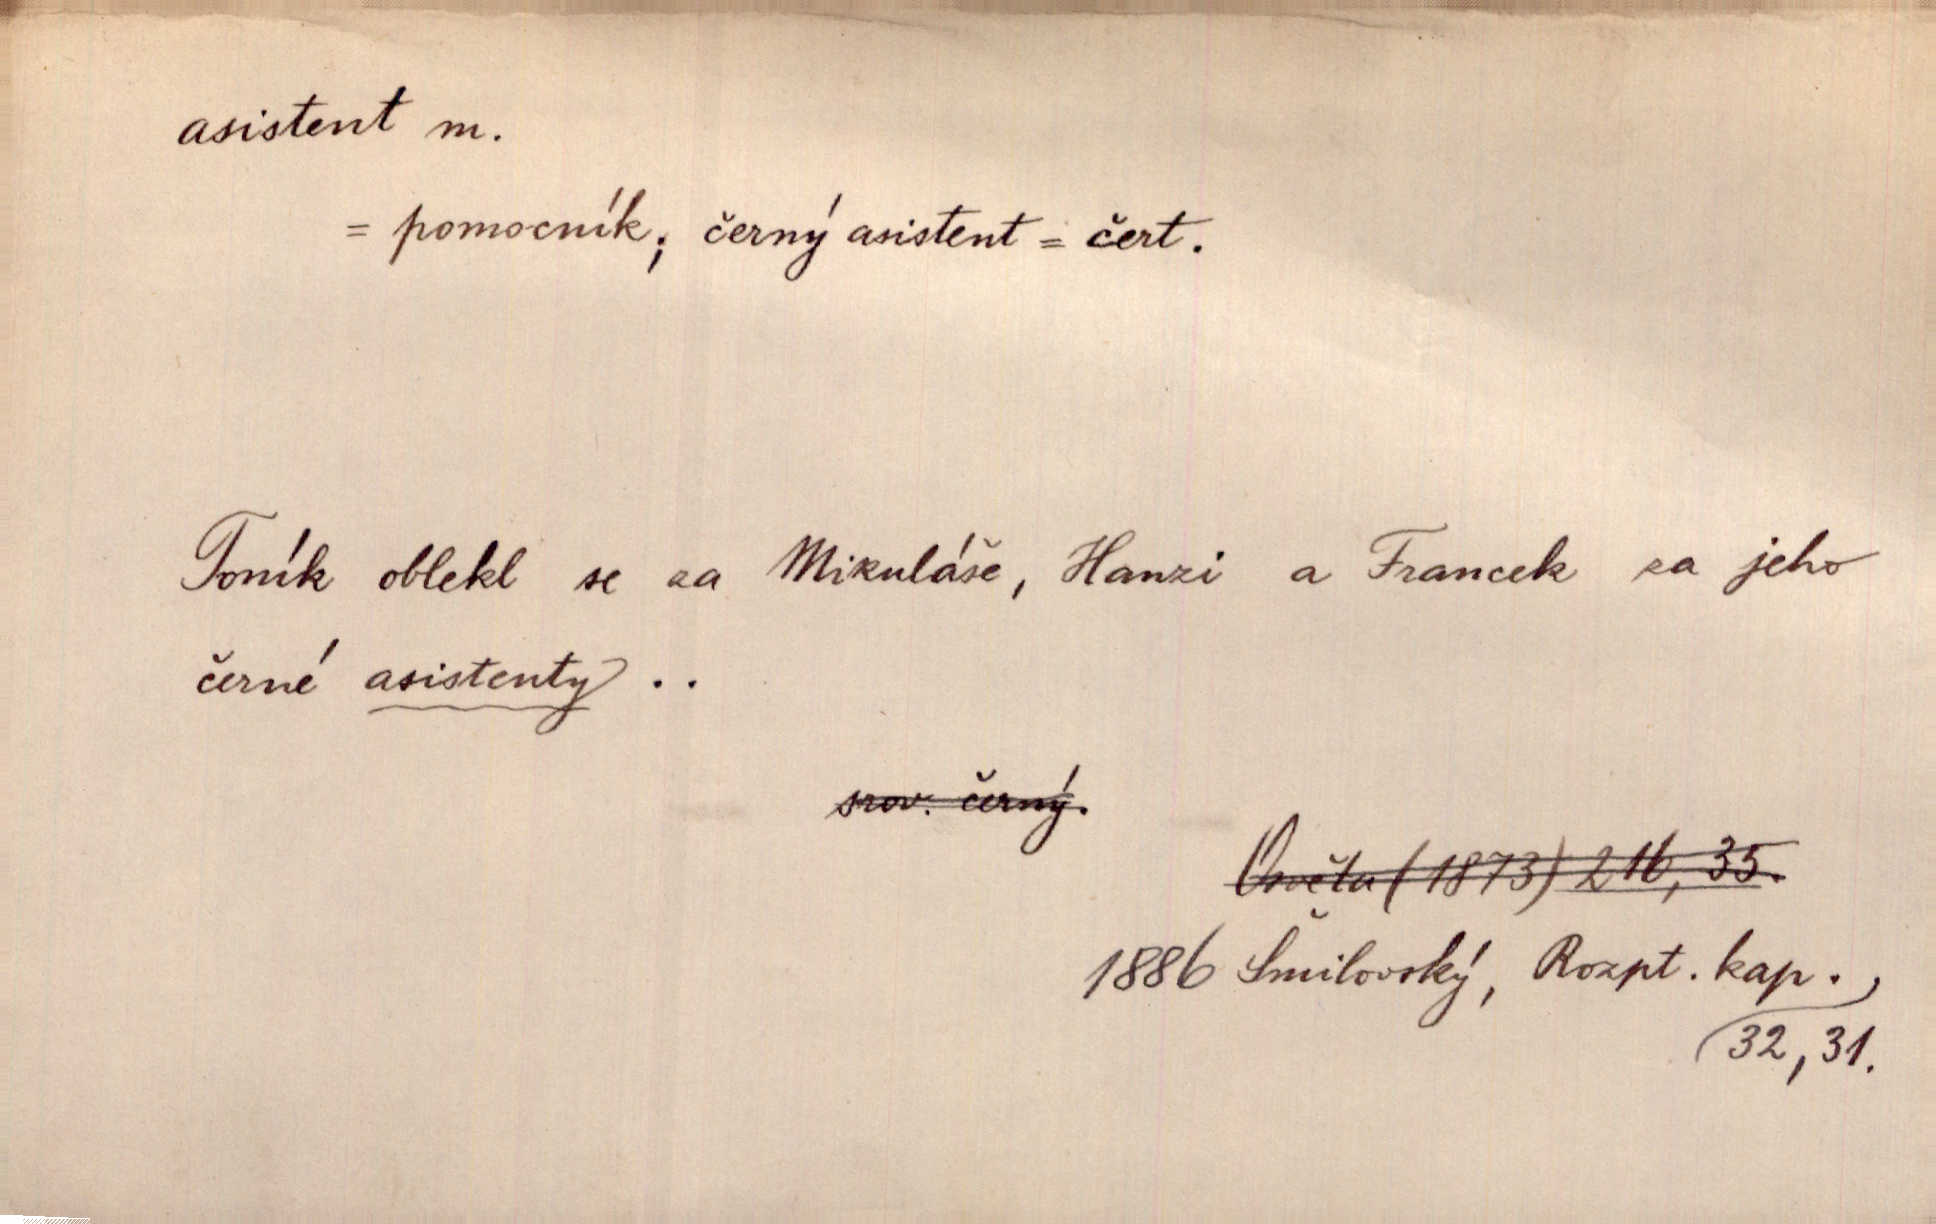 asistent m.
= pomocník; černý asistent = čert.
Toník oblekl se za Mikuláše, Hanzi a Francek za jeho
černé asistenty ..
srov. černý.
Osvěta (1873) 216, 35.
1886 Šmilovský, Rozpt. kap.,
32, 31.